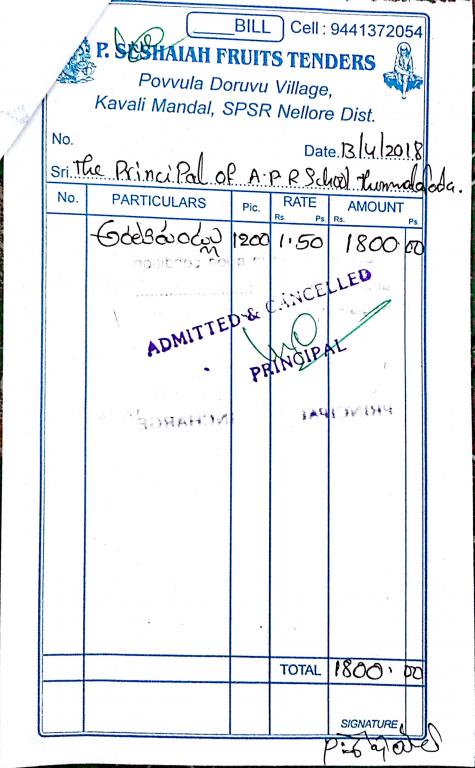 BILL Cell : 9441372054
P. SESHAIAH FRUITS TENDERS
Povvula Doruvu Village,
Kavali Mandal, SPSR Nellore Dist.
No.
Date. 13/4/2018
Sri. The Principal of A.P.R School
No. PARTICULARS Pic. RATE AMOUNT
Rs. Ps. Rs. Ps.
అరటిపండ్లు 1200 1.50 1800.00
ADMITTED & CANCELLED
PRINCIPAL
TOTAL 1800.00
SIGNATURE